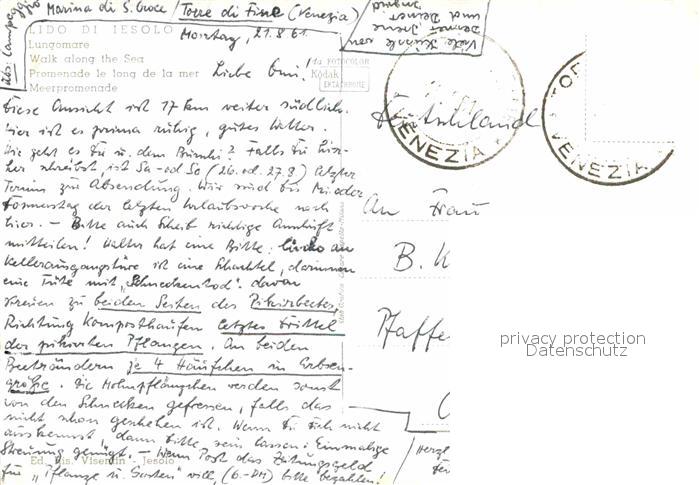 Marina di S. Croce / Torre di Fine (Venezia)
üb: Campeggio
LIDO DI JESOLO
Lungomare
Walk along the Sea
Promenade le long de la mer
Meerpromenade
Montag, 21.8.61.
da FOTOCOLOR
Kodak
EKTACHROME
Viele Küsse von
Deiner Irene
und Deinem
Liebe Omi!
Diese Ansicht ist 17 km weiter südlich.
Hier ist es prima ruhig, gutes Wetter.
Wie geht es Dir u. dem Buschi? Falls Du hier-
her schreibst, ist Sa - od So (26. od. 27.8) letzter
Termin zur Absendung. Wir sind bis Mi oder
Donnerstag der letzten Urlaubswoche noch
hier. - Bitte auch Scheib richtige Anschrift
mitteilen! Walter hat eine Bitte: links an
Kellerausgangstüre ist eine Schachtel, darinnen
eine Tüte mit "Schneckentod". davon
streuen zu beiden Seiten des Pikierbeetes,
Richtung Komposthaufen letztes Drittel
der pikierten Pflanzen. An beiden
Beeträndern je 4 Häufchen in Erbsen-
größe. Die Mohnpflänzchen werden sonst
von den Schnecken gefressen, falls das
nicht schon geschehen ist. Wenn Du Dich nicht
auskennst, dann bitte sein lassen. Einmalige
Streuung genügt. - Wenn Post das Zeitungsgeld
für "Pflanze u. Garten" will, (6.-DM) bitte bezahlen!
Ed. Ris. Visentin - Jesolo
VENEZIA
VENEZIA
Deutschland
An Frau
B. K
Pfaffe
Herzl
privacy protection
Datenschutz